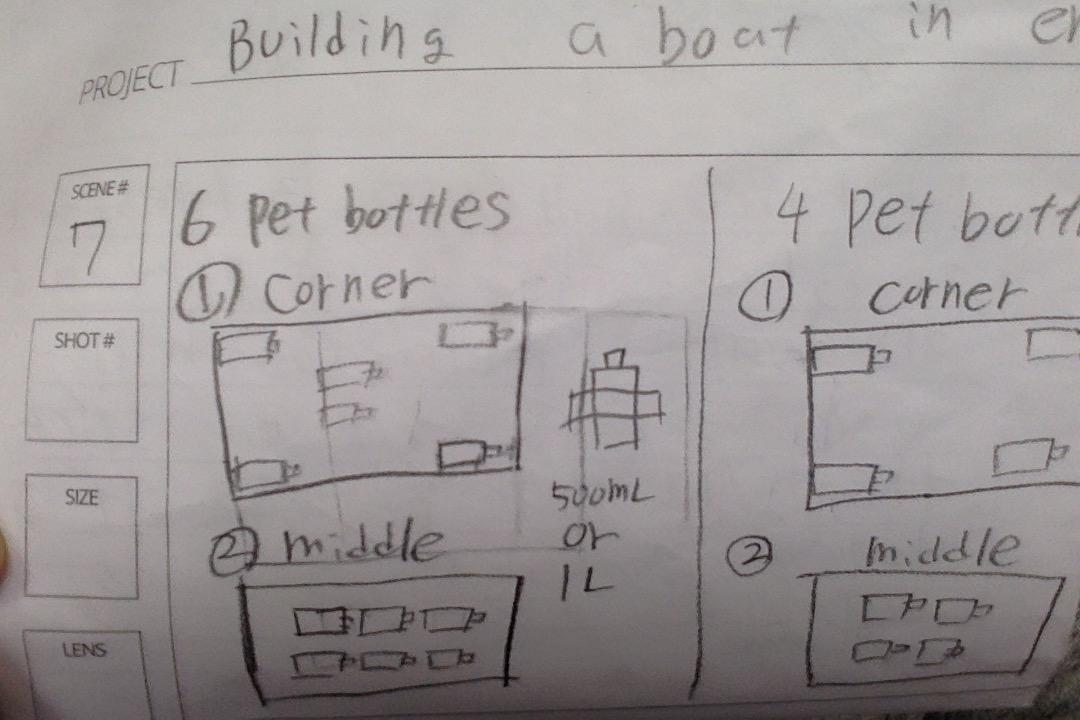 PROJECT Building a boat in
SCENE#
7
SHOT#
SIZE
LENS
6 Pet bottles
① corner
500mL
or
1L
② middle
4 Pet
① corner
② middle